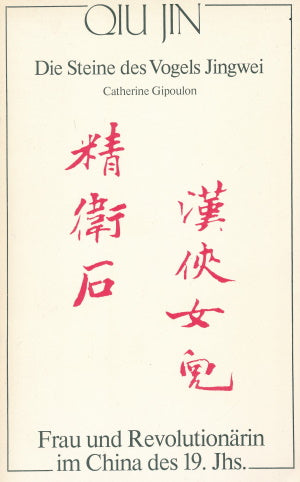 QIU JIN
Die Steine des Vogels Jingwei
Catherine Gipoulon
精衛石
漢俠女兒
Frau und Revolutionärin
im China des 19. Jhs.